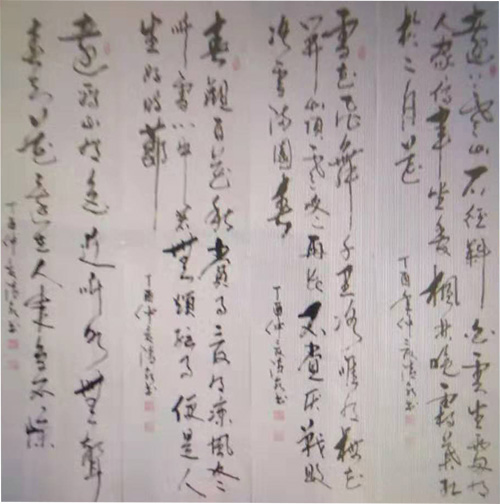 遠上寒山石徑斜白雲生處有
人家停車坐愛楓林晚霜葉紅
於二月花
丁酉仲夏
雪花飛舞千里 唯有梅花
冬再 不覺 戰敗
冷雪滿園春
丁酉仲夏
春觀百花秋賞月夏有涼風冬
聽雪心中若無煩惱事便是人
生好時節
丁酉仲夏
遠看山有色近聽水無聲
春去花還在人來鳥不驚
丁酉仲夏